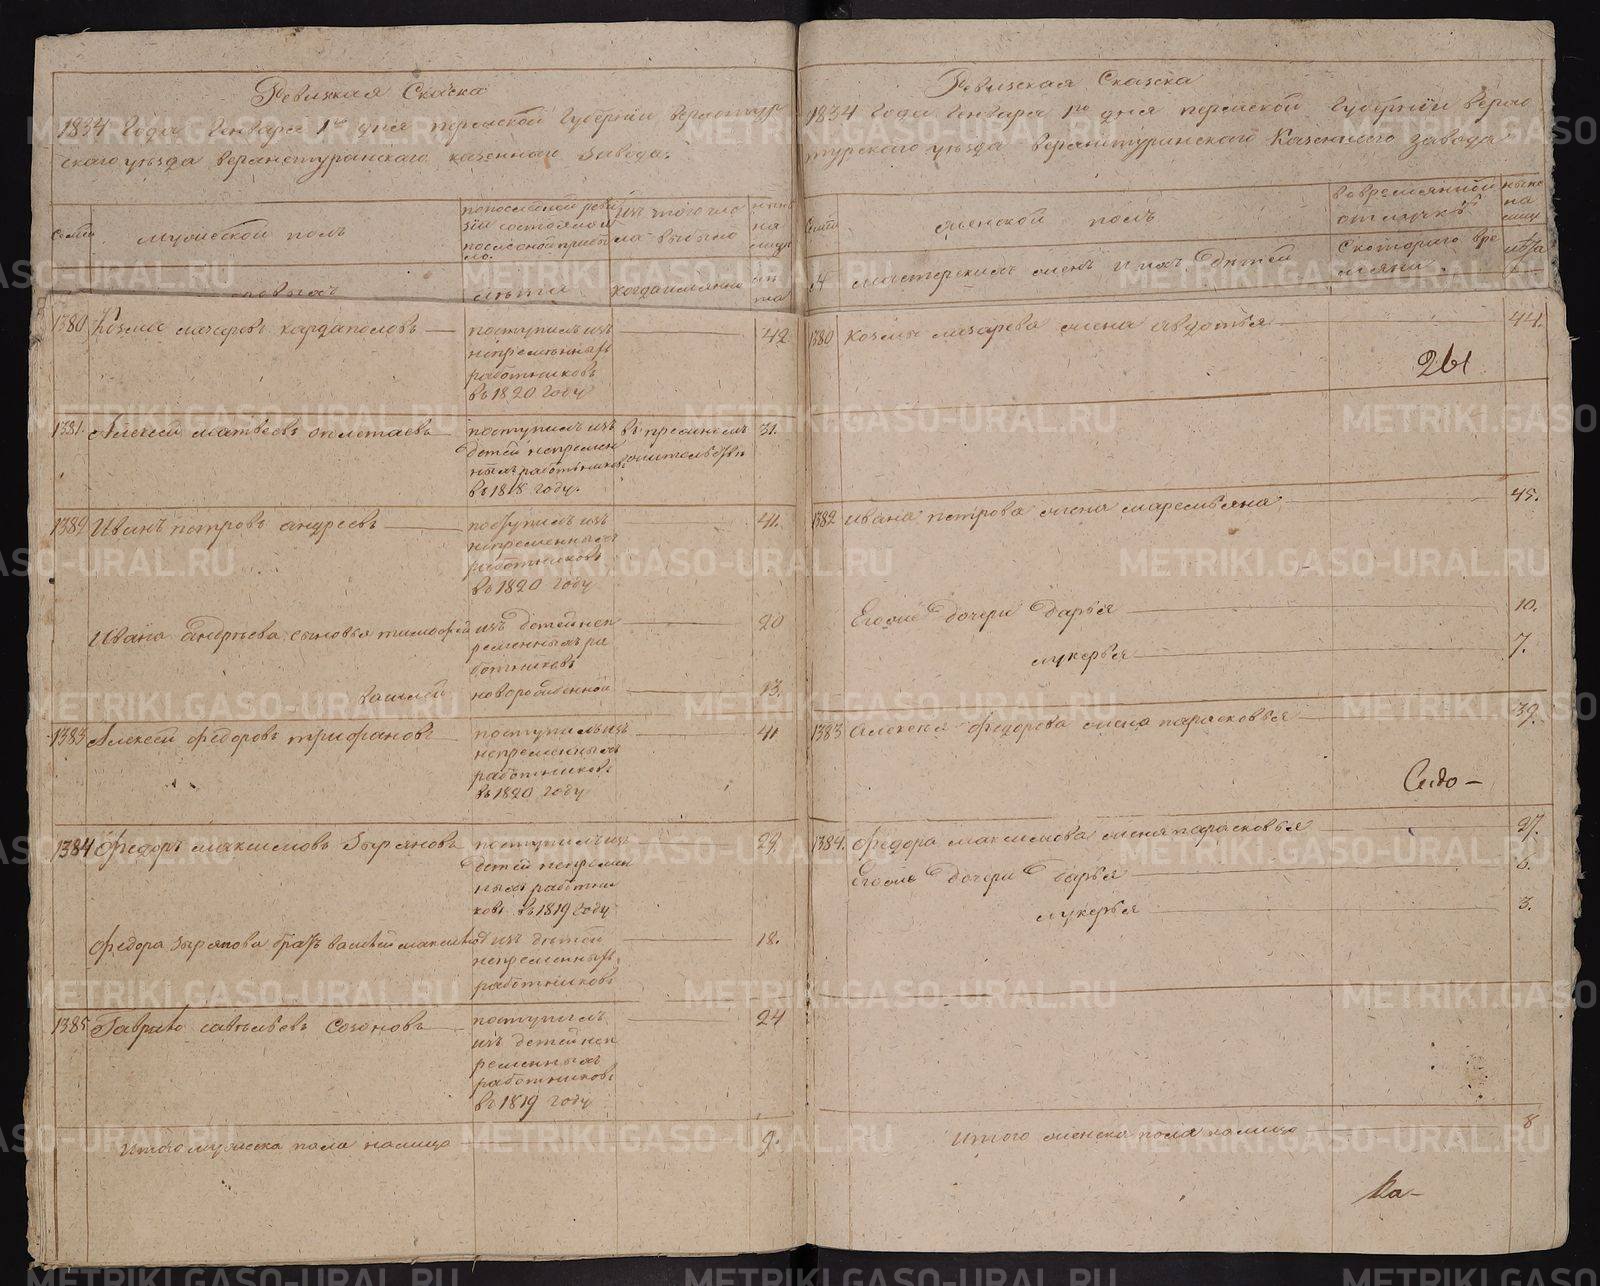 Ревизкая Сказка
1834 Года Генваря 1го дня пермской Губернии Верхотур
скаго уезда верхнетуринскаго казеннаго завода.
Семьи
мужескои полъ
попоследнои реви
зіи состояло и
после оной прибы
ло.
изъ того чис
ла выбыло
ныне
на
лицо
лета
когда имянно
ле
та
1380 Козма лазаревъ кардаполовъ
поступилъ изъ
непременныхъ
работниковъ
въ 1820 Году
42
1381. Алексеи матвеевъ оплетаевъ
поступилъ изъ
детей непремен
ныхъ работниковъ
въ 1818 году.
31.
1382 Иванъ петровъ андреевъ
поступилъ изъ
непременныхъ
работниковъ
въ 1820 году
41.
Ивана Андреева сыновья тимофей
изъ детей неп
ременныхъ ра
ботниковъ
20
василей
новорожденной
13.
1383 Алексеи федоровъ трифановъ
поступилъ изъ
непременныхъ
работниковъ
въ 1820 году
41
1384 федоръ максимовъ Зыряновъ
поступилъ изъ
детей непремен
ныхъ работни
ковъ въ 1819 Году
29.
федора зырянова братъ василей максимовъ
изъ детей
непременныхъ
работниковъ
18.
1385 Гаврило савельевъ Созоновъ
поступилъ
изъ детей неп
ременныхъ
работниковъ
въ 1819 году
24
Итого мужеска пола налицо
9.
Ревизская Сказка
1834 Года Генваря 1го дня пермской Губерніи Верхо
турскаго уезда Верхнетуринскаго Казеннаго завода
Семьи
женской полъ
во временной
отлучке
ныне
на
лицо
№
мастерскихъ жонъ и ихъ детей
Скотораго вре
мяни.
лета
1380 Козмы лазарева жена авдотья
44.
261
1382 ивана петрова жена маремьяна
45.
Егоже дочери дарья
10.
лукерья
7.
1383 алексея федорова жена парасковья
39.
Сидо-
1384. федора максимова жена парасковья
27.
Егоже дочери дарья
6.
лукерья
3.
Итого женска пола налицо
8
ка-
METRIKI.GASO-URAL.RU